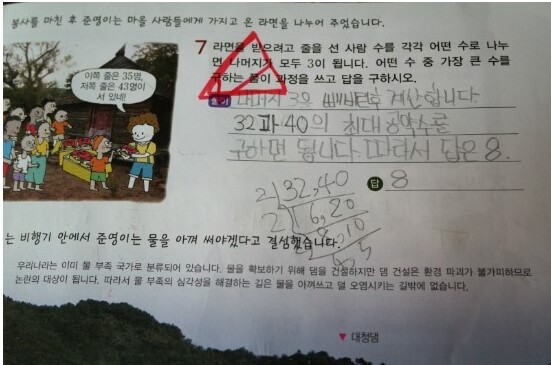 봉사를 마친 후 준영이는 마을 사람들에게 가지고 온 라면을 나누어 주었습니다.
이쪽 줄은 35명,
저쪽 줄은 43명이
서 있네!
7 라면을 받으려고 줄을 선 사람 수를 각각 어떤 수로 나누
면 나머지가 모두 3이 됩니다. 어떤 수 중 가장 큰 수를
구하는 풀이 과정을 쓰고 답을 구하시오.
풀이 나머지 3을 빼 계산합니다.
32과 40의 최대 공약수를
구하면 됩니다. 따라서 답은 8.
답 8
2) 32, 40
2) 16, 20
는 비행기 안에서 준영이는 물을 아껴 써야겠다고 결심했습니다.
우리나라는 이미 물 부족 국가로 분류되어 있습니다. 물을 확보하기 위해 댐을 건설하지만 댐 건설은 환경 파괴가 불가피하므로
논란의 대상이 됩니다. 따라서 물 부족의 심각성을 해결하는 길은 물을 아껴쓰고 덜 오염시키는 길밖에 없습니다.
▼ 대청댐